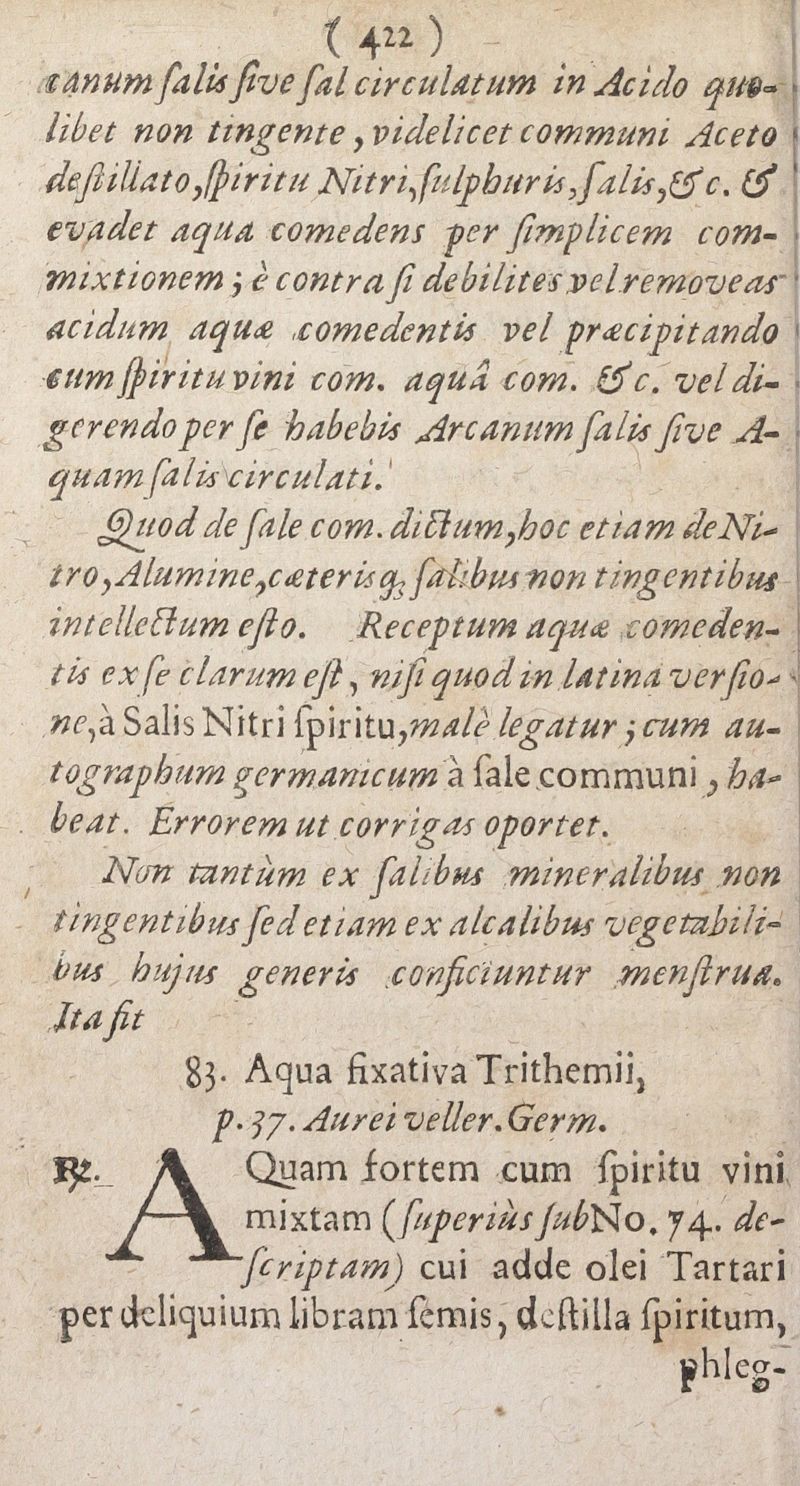 ( 422 )
canum ſalis ſive ſal circulatum in Acido quo-
libet non tingente, videlicet communi Aceto
deſtillato, ſpiritu Nitri, ſulphuris, ſalis, &c. &
evadet aqua comedens per ſimplicem com-
mixtionem; è contra ſi debilites vel removeas
acidum aquæ comedentis vel præcipitando
cum ſpiritu vini com. aquâ com. &c. vel di-
gerendo per ſe habebis Arcanum ſalis ſive A-
quam ſalis circulati.
Quod de ſale com. dictum, hoc etiam de Ni-
tro, Alumine, cæterisq; ſalibus non tingentibus
intellectum eſto. Receptum aquæ comeden-
tis ex ſe clarum eſt, niſi quod in latina verſio-
ne, à Salis Nitri ſpiritu, malè legatur; cum au-
tographum germanicum à ſale communi, ha-
beat. Errorem ut corrigas oportet.
Non tantùm ex ſalibus mineralibus non
tingentibus ſed etiam ex alcalibus vegetabili-
bus hujus generis conficiuntur menſtrua.
Ita fit
83. Aqua fixativa Trithemii,
p. 37. Aurei veller. Germ.
℞. AQuam fortem cum ſpiritu vini
mixtam (ſuperiùs ſub No. 74. de-
ſcriptam) cui adde olei Tartari
per deliquium libram ſemis, deſtilla ſpiritum,
phleg-